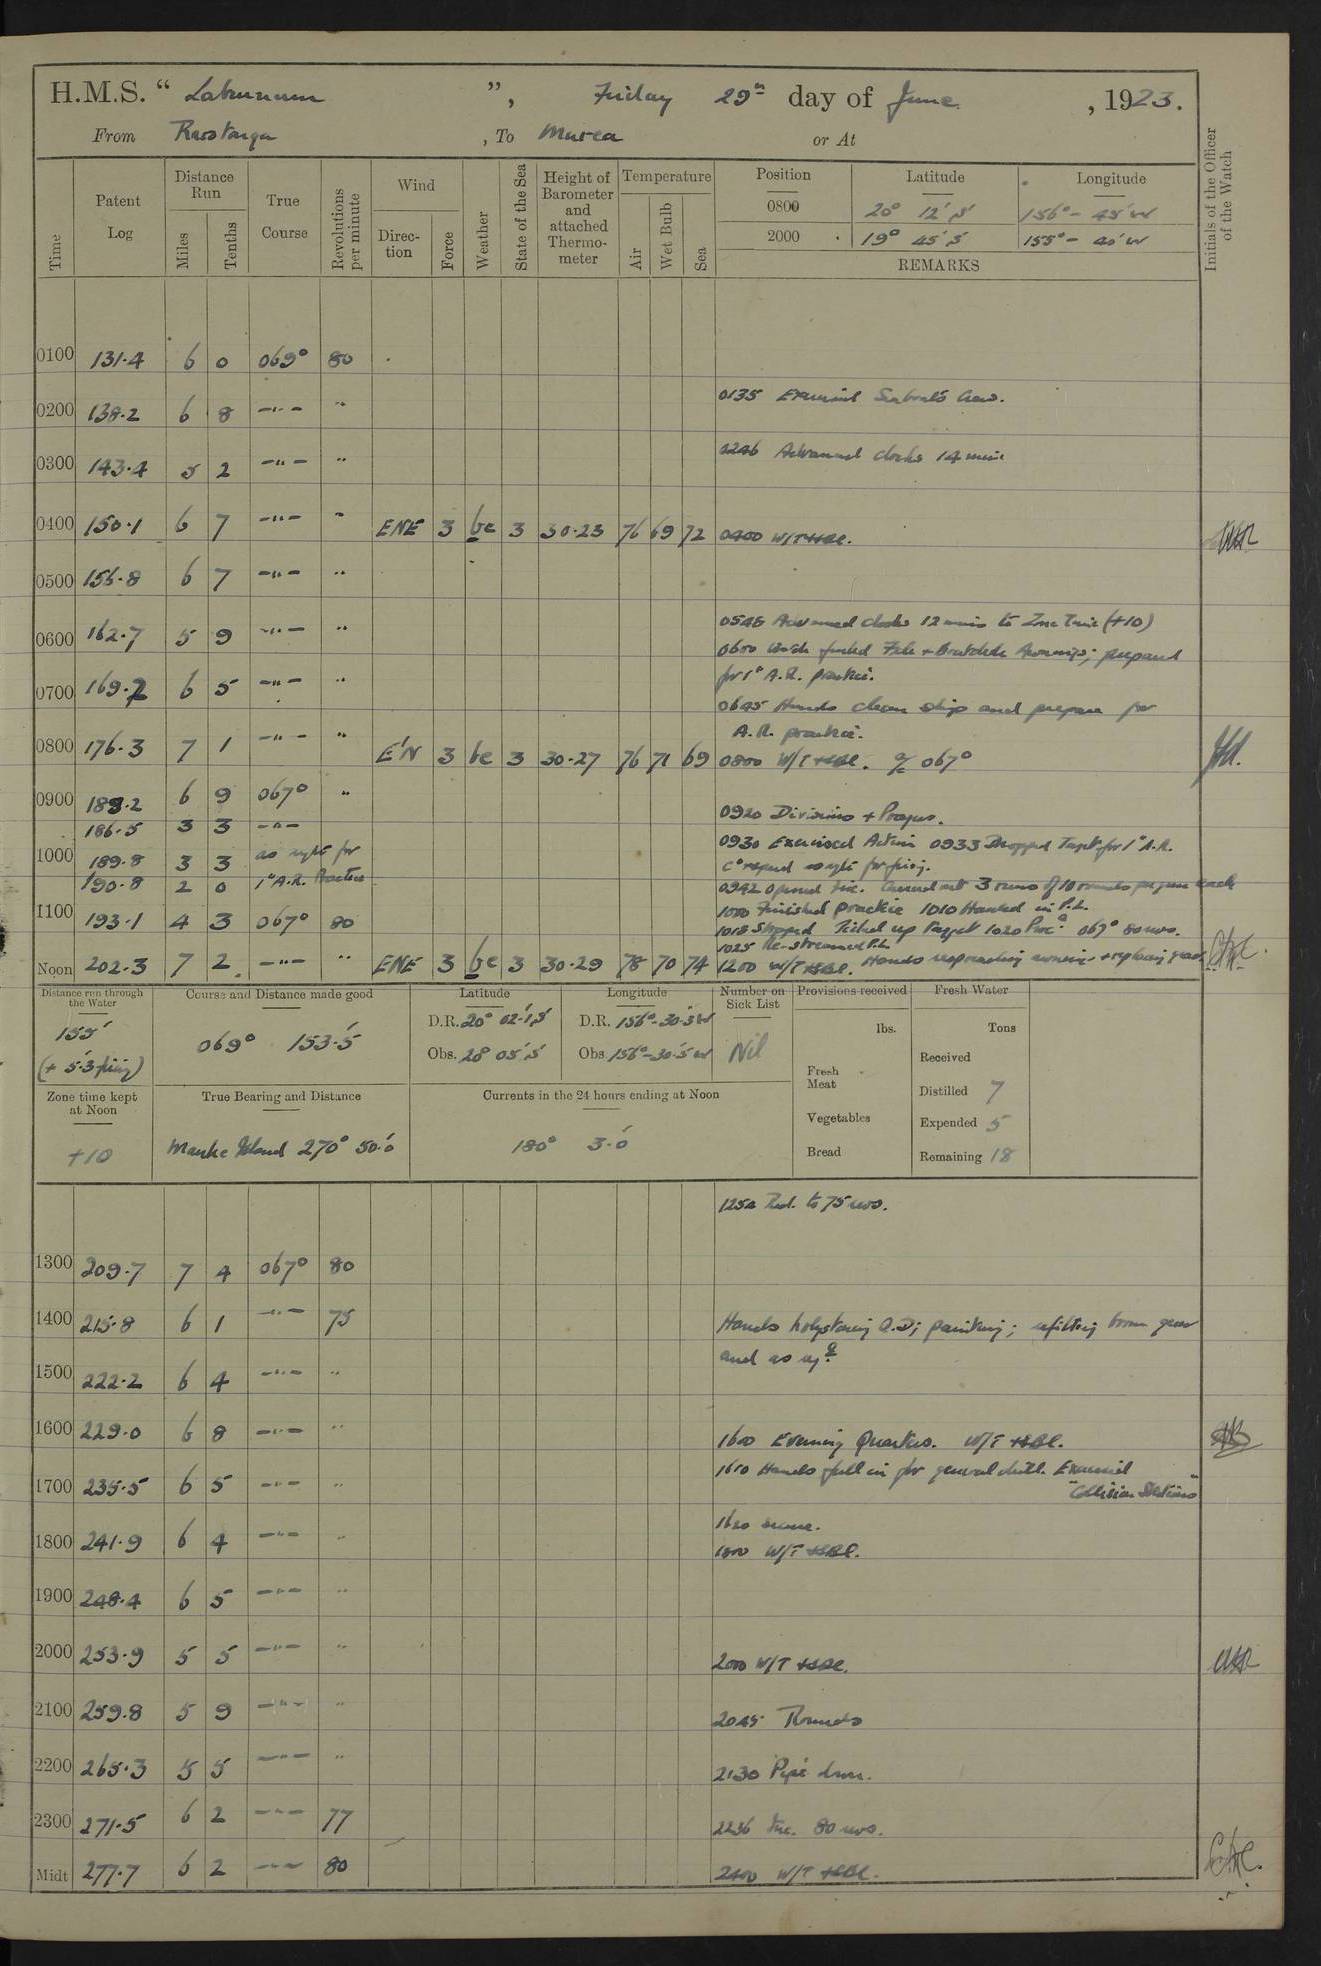 H.M.S. “ Laburnum ”, Friday 29th day of June , 1923.
From Rarotonga , To Murea or At
Time
Patent Log
Distance Run
Miles
Tenths
True Course
Revolutions per minute
Wind
Direc-tion
Force
Weather
State of the Sea
Height of Barometer and attached Thermo-meter
Temperature
Air
Wet Bulb
Sea
Position Latitude Longitude
0800 20° 12' S 156° - 45' W
2000 19° 45' S 155° - 40' W
REMARKS
Initials of the Officer of the Watch
0100 131.4 6 0 069° 80
0135 Exercised Seaboat's Crew.
0200 138.2 6 8 —"— "
0246 Advanced clocks 14 mins
0300 143.4 5 2 —"— "
0400 150.1 6 7 —"— " ENE 3 bc 3 30.23 76 69 72 0400 W/T
0500 156.8 6 7 —"— "
0545 Advanced clocks 12 mins to Zone Time (+10)
0600 162.7 5 9 —"— "
0600 Hands furled Awnings; prepared
for 1" A.R. practice.
0700 169.2 6 5 —"— "
0645 Hands clean ship and prepare for
A.R. practice.
0800 176.3 7 1 —"— " E'N 3 bc 3 30.27 76 71 69 0800 W/T a/c 067°
0900 183.2 6 9 067° "
0920 Divisions + Prayers.
186.5 3 3 —"—
0930 Exercised Action 0933 Dropped Target for 1" A.R.
1000 189.8 3 3 as reqte for
Co reqd as reqte for firing.
190.8 2 0 1" A.R. Practice
0942 Opened fire. Carried out 3 runs of 10 rounds per gun each
1000 Finished practice 1010 Hauled in P.L.
1100 193.1 4 3 067° 80
1018 Stopped Picked up Target 1020 Proc.d 067° 80 revs.
1025 Re-streamed P.L.
Noon 202.3 7 2 —"— " ENE 3 bc 3 30.29 78 70 74 1200 W/T Hands respreading awnings + replacing gear.
Distance run through the Water
155'
(+ 5.3' firing)
Course and Distance made good
069° 153.5'
Latitude
D.R. 20° 02.1' S
Obs. 20° 05' S
Longitude
D.R. 156° - 30.5' W
Obs. 156° - 30.5' W
Number on Sick List
Nil
Provisions received
lbs.
Fresh Meat
Vegetables
Bread
Fresh Water
Tons
Received
Distilled 7
Expended 5
Remaining 18
Zone time kept at Noon
+10
True Bearing and Distance
Mauke Island 270° 50.0'
Currents in the 24 hours ending at Noon
180° 3.0'
1254 Red. to 75 revs.
1300 209.7 7 4 067° 80
1400 215.8 6 1 —"— 75 Hands holystoning Q.D; painting; refitting boom gear
and as req.d
1500 222.2 6 4 —"— "
1600 229.0 6 8 —"— " 1600 Evening Quarters. W/T
1610 Hands fell in for general drill. Exercised
"Collision Stations"
1700 235.5 6 5 —"— "
1620 Secure.
1800 241.9 6 4 —"— " 1800 W/T
1900 248.4 6 5 —"— "
2000 253.9 5 5 —"— " 2000 W/T
2100 259.8 5 9 —"— " 2045 Rounds
2200 265.3 5 5 —"— " 2130 Pipe down.
2300 271.5 6 2 —"— 77 2236 Inc. 80 revs.
Midt 277.7 6 2 —"— 80 2400 W/T